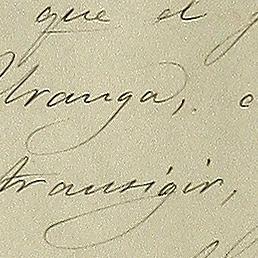 que el
Uranga,
transigir,